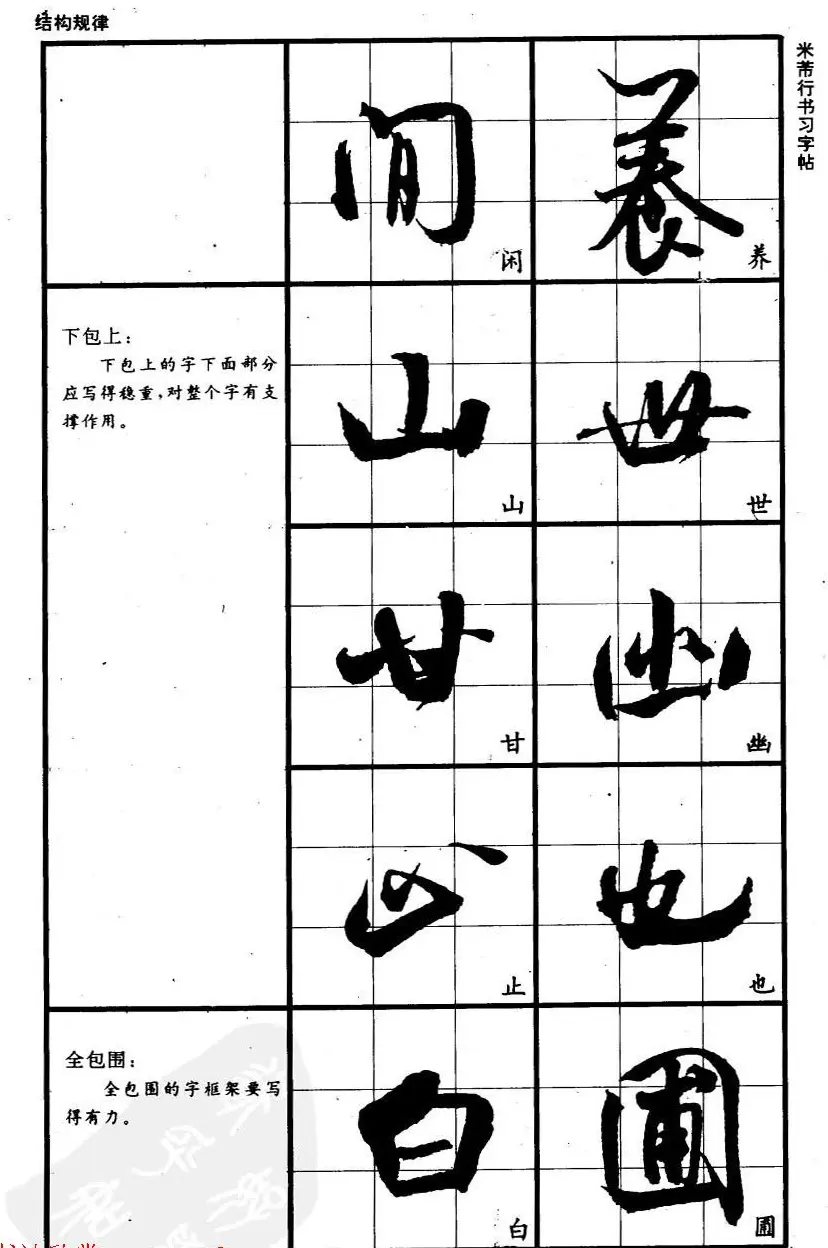 结构规律
米芾行书习字帖
養
养
閒
闲
下包上：
下包上的字下面部分
应写得稳重，对整个字有支
撑作用。
世
世
山
山
幽
幽
甘
甘
也
也
止
止
全包围：
全包围的字框架要写
得有力。
圃
圃
白
白